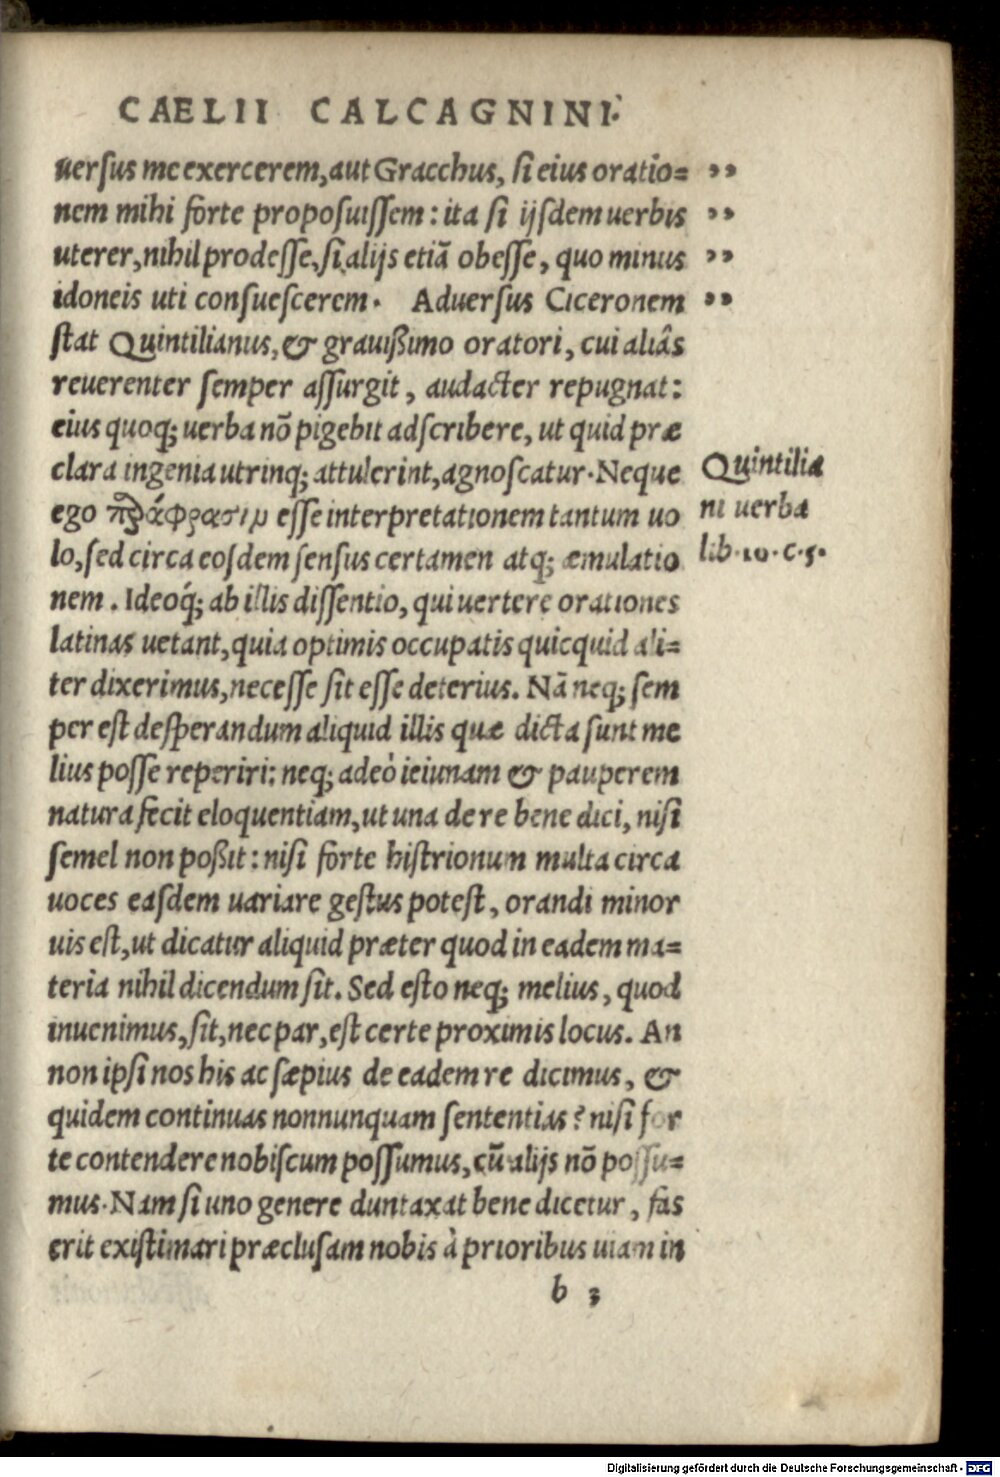 CAELII CALCAGNINI.
uersus me exercerem, aut Gracchus, si eius oratio= ,,
nem mihi forte proposuissem: ita si ijsdem uerbis ,,
uterer, nihil prodesse, si alijs etiã obesse, quo minus ,,
idoneis uti consuescerem. Aduersus Ciceronem ,,
stat Quintilianus, & grauißimo oratori, cui aliâs
reuerenter semper assurgit, audacter repugnat:
eius quoq; uerba nõ pigebit adscribere, ut quid præ
clara ingenia utrinq; attulerint, agnoscatur. Neque
ego παράφρασιν esse interpretationem tantum uo
lo, sed circa eosdem sensus certamen atq; æmulatio
nem. Ideoq́; ab illis dissentio, qui uertere orationes
latinas uetant, quia optimis occupatis quicquid ali=
ter dixerimus, necesse sit esse deterius. Nã neq; sem
per est desperandum aliquid illis quæ dicta sunt me
lius posse reperiri: neq; adeò ieiunam & pauperem
natura fecit eloquentiam, ut una de re bene dici, nisi
semel non poßit: nisi forte histrionum multa circa
uoces easdem uariare gestus potest, orandi minor
uis est, ut dicatur aliquid præter quod in eadem ma=
teria nihil dicendum sit. Sed esto neq; melius, quod
inuenimus, sit, nec par, est certe proximis locus. An
non ipsi nos his ac sæpius de eadem re dicimus, &
quidem continuas nonnunquam sententias? nisi for
te contendere nobiscum possumus, cũ alijs nõ possu=
mus. Nam si uno genere duntaxat bene dicetur, fas
erit existimari præclusam nobis à prioribus uiam in
b 3
Quintilia
ni uerba
lib. 10. c. 5.
Digitalisierung gefördert durch die Deutsche Forschungsgemeinschaft - DFG